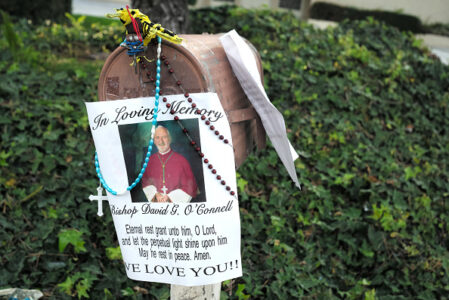 In Loving Memory
Bishop David G. O'Connell
Eternal rest grant unto him, O Lord,
and let the perpetual light shine upon him
May he rest in peace. Amen.
WE LOVE YOU!!